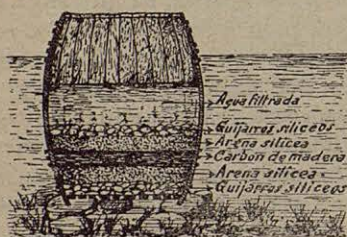 Agua filtrada
Guijarros silíceos
Arena silícea
Carbón de madera
Arena silícea
Guijarros silíceos